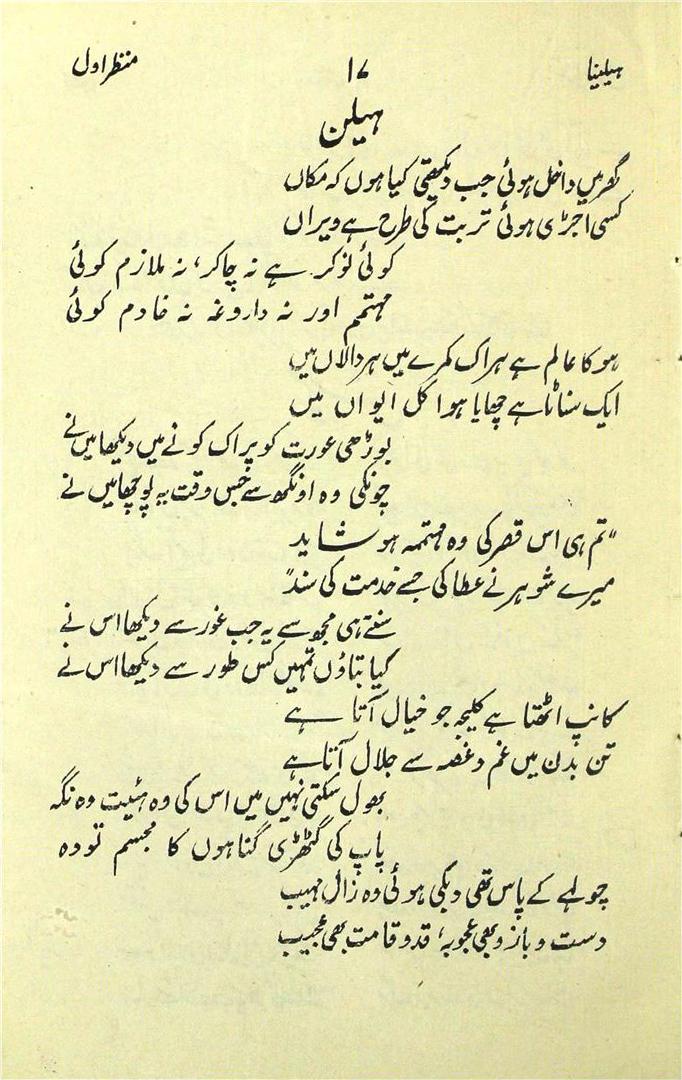 ہیلینا ۱۷ منظر اول
ہیلن
گھر میں داخل ہوئی جب دیکھتی کیا ہوں کہ مکاں
کسی اجڑی ہوئی تربت کی طرح ہے ویراں
کوئی نوکر ہے نہ چاکر، نہ ملازم کوئی
مہتمم اور نہ داروغہ نہ خادم کوئی
ہو کا عالم ہے ہر اک کمرے میں ہر دالاں میں
ایک سناٹا ہے چھایا ہوا کل ایواں میں
بوڑھی عورت کو پر اک کونے میں دیکھا میں نے
چونکی وہ اونگھ سے جس وقت یہ پوچھا میں نے
"تم ہی اس قصر کی وہ مہتممہ ہو شاید
میرے شوہر نے عطا کی جسے خدمت کی سند"
سنتے ہی مجھ سے یہ جب غور سے دیکھا اس نے
کیا بتاؤں تمہیں کس طور سے دیکھا اس نے
کانپ اٹھتا ہے کلیجہ جو خیال آتا ہے
تن بدن میں غم و غصہ سے جلال آتا ہے
بھول سکتی نہیں میں اس کی وہ ہئیت وہ نگہ
پاپ کی گٹھڑی گناہوں کا مجسم تودہ
چولہے کے پاس تھی دبکی ہوئی وہ زال مہیب
دست و بازو بھی عجوبہ، قد و قامت بھی عجیب